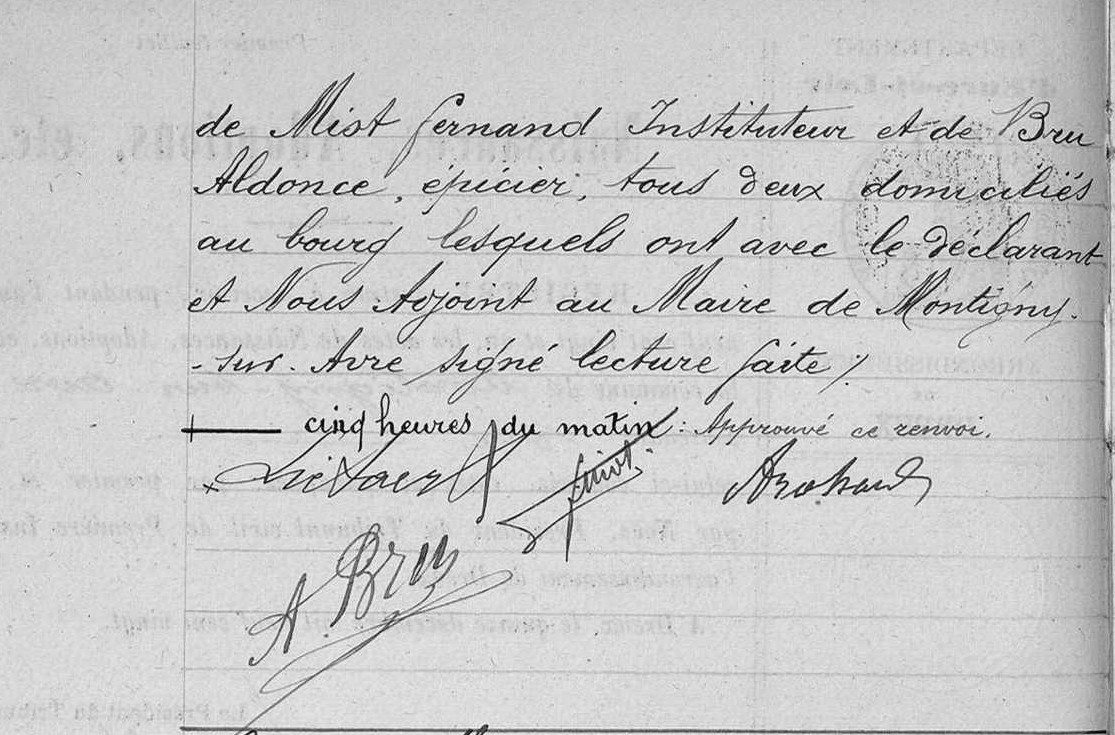 de Miot fernand Instituteur et de Bru
Aldonce, épicier, tous deux domiciliés
au bourg lesquels ont avec le déclarant
et Nous Adjoint au Maire de Montigny-
-sur-Avre signé lecture faite ⁒
cinq heures du matin : Approuvé ce renvoi.
A. Bru